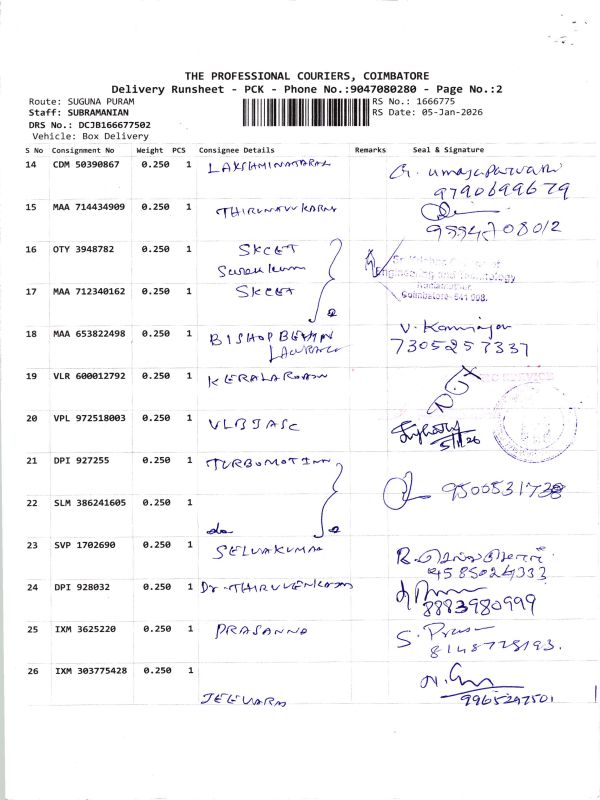 THE PROFESSIONAL COURIERS, COIMBATORE
Delivery Runsheet - PCK - Phone No.:9047080280 - Page No.:2
Route: SUGUNA PURAM
RS No.: 1666775
Staff: SUBRAMANIAN
RS Date: 05-Jan-2026
DRS No.: DCJB166677502
Vehicle: Box Delivery
S No Consignment No Weight PCS Consignee Details Remarks Seal & Signature
14 CDM 50390867 0.250 1 G. umaparvathi
9790699679
15 MAA 714434909 0.250 1 THIRUNAVUKARAS
16 OTY 3948782 0.250 1 SKCET
Engineering and Technology
17 MAA 712340162 0.250 1 SKCET
Coimbatore-641 008.
18 MAA 653822498 0.250 1 BISHOP
7305257337
19 VLR 600012792 0.250 1
20 VPL 972518003 0.250 1 VLBJASC
5/1/26
21 DPI 927255 0.250 1
22 SLM 386241605 0.250 1
do
23 SVP 1702690 0.250 1 SELVAKUMAR
9585024333
24 DPI 928032 0.250 1 Dr. THIRUVENKADAM
8883980999
25 IXM 3625220 0.250 1 PRASANNA
8148728193.
26 IXM 303775428 0.250 1
JEEVARAJ 9965297501